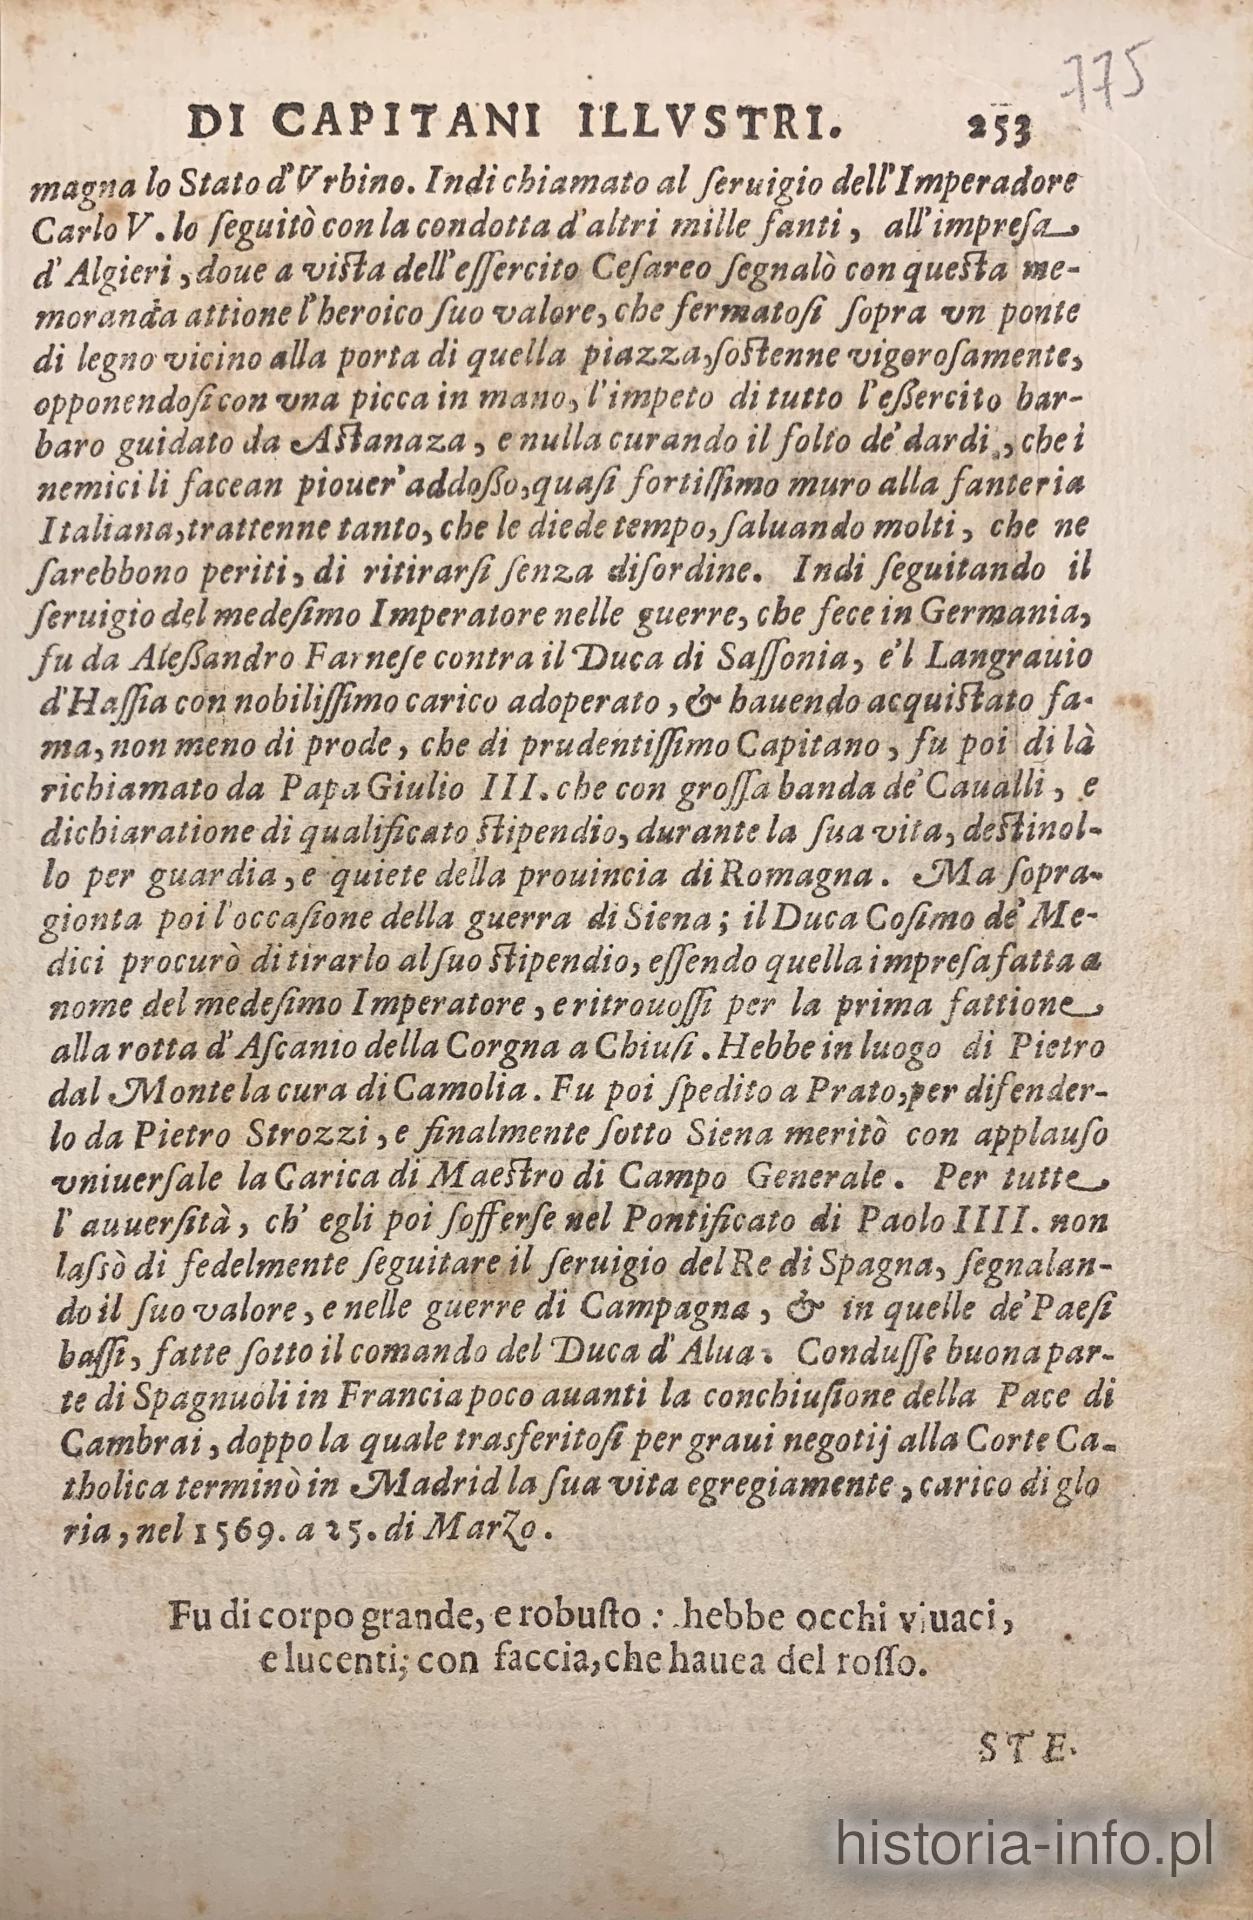 775
DI CAPITANI ILLVSTRI. 253
magna lo Stato d'Vrbino. Indi chiamato al ſeruigio dell'Imperadore
Carlo V. lo ſeguitò con la condotta d'altri mille fanti, all'impreſa
d'Algieri, doue a viſta dell'eſſercito Ceſareo ſegnalò con queſta me-
moranda attione l'heroico ſuo valore, che fermatoſi ſopra vn ponte
di legno vicino alla porta di quella piazza, ſoſtenne vigoroſamente,
opponendoſi con vna picca in mano, l'impeto di tutto l'eßercito bar-
baro guidato da Aſtanaza, e nulla curando il folto de' dardi, che i
nemici li facean piouer' addoßo, quaſi fortiſſimo muro alla fanteria
Italiana, trattenne tanto, che le diede tempo, ſaluando molti, che ne
ſarebbono periti, di ritirarſi ſenza diſordine. Indi ſeguitando il
ſeruigio del medeſimo Imperatore nelle guerre, che fece in Germania,
fu da Aleßandro Farneſe contra il Duca di Saſſonia, e'l Langrauio
d'Haſſia con nobiliſſimo carico adoperato, & hauendo acquiſtato fa-
ma, non meno di prode, che di prudentiſſimo Capitano, fu poi di là
richiamato da Papa Giulio III. che con groſſa banda de' Caualli, e
dichiaratione di qualificato ſtipendio, durante la ſua vita, deſtinol-
lo per guardia, e quiete della prouincia di Romagna. Ma ſopra-
gionta poi l'occaſione della guerra di Siena; il Duca Coſimo de' Me-
dici procurò di tirarlo al ſuo ſtipendio, eſſendo quella impreſa fatta a
nome del medeſimo Imperatore, e ritrouoſſi per la prima fattione
alla rotta d'Aſcanio della Corgna a Chiuſi. Hebbe in luogo di Pietro
dal Monte la cura di Camolia. Fu poi ſpedito a Prato, per difender-
lo da Pietro Strozzi, e finalmente ſotto Siena meritò con applauſo
vniuerſale la Carica di Maeſtro di Campo Generale. Per tutte
l'auuerſità, ch' egli poi ſofferſe nel Pontificato di Paolo IIII. non
laſsò di fedelmente ſeguitare il ſeruigio del Re di Spagna, ſegnalan-
do il ſuo valore, e nelle guerre di Campagna, & in quelle de' Paeſi
baſſi, fatte ſotto il comando del Duca d'Alua. Conduſſe buona par-
te di Spagnuoli in Francia poco auanti la conchiuſione della Pace di
Cambrai, doppo la quale trasferitoſi per graui negotij alla Corte Ca-
tholica terminò in Madrid la ſua vita egregiamente, carico di glo
ria, nel 1569. a 25. di Marzo.
Fu di corpo grande, e robuſto : hebbe occhi viuaci,
e lucenti; con faccia, che hauea del roſſo.
STE.
historia-info.pl